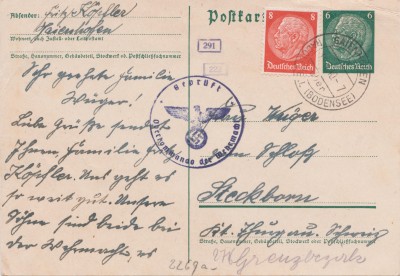 Absender: Fritz Köschler
Gaienhofen
Wohnort, auch Zustell- oder Leitpostamt
Straße, Hausnummer, Gebäudeteil, Stockwerk od. Postschließfachnummer
Sehr geehrte Familie
Wüger!
Liebe Grüße sendet
Ihrer Familie
Köschler. Uns geht es
so weit gut. Unsere
Söhne sind beide bei
der Wehrmacht, es
Postkarte
291
8 8
Deutsches Reich
6 6
Deutsches Reich
(BODENSEE)
Geprüft
Oberkommando der Wehrmacht
Wüger
Schloß
Steckborn
Kt. Thurgau. Schweiz
Straße, Hausnummer, Gebäudeteil, Stockwerk oder Postschließfachnummer
Grenzbezirk